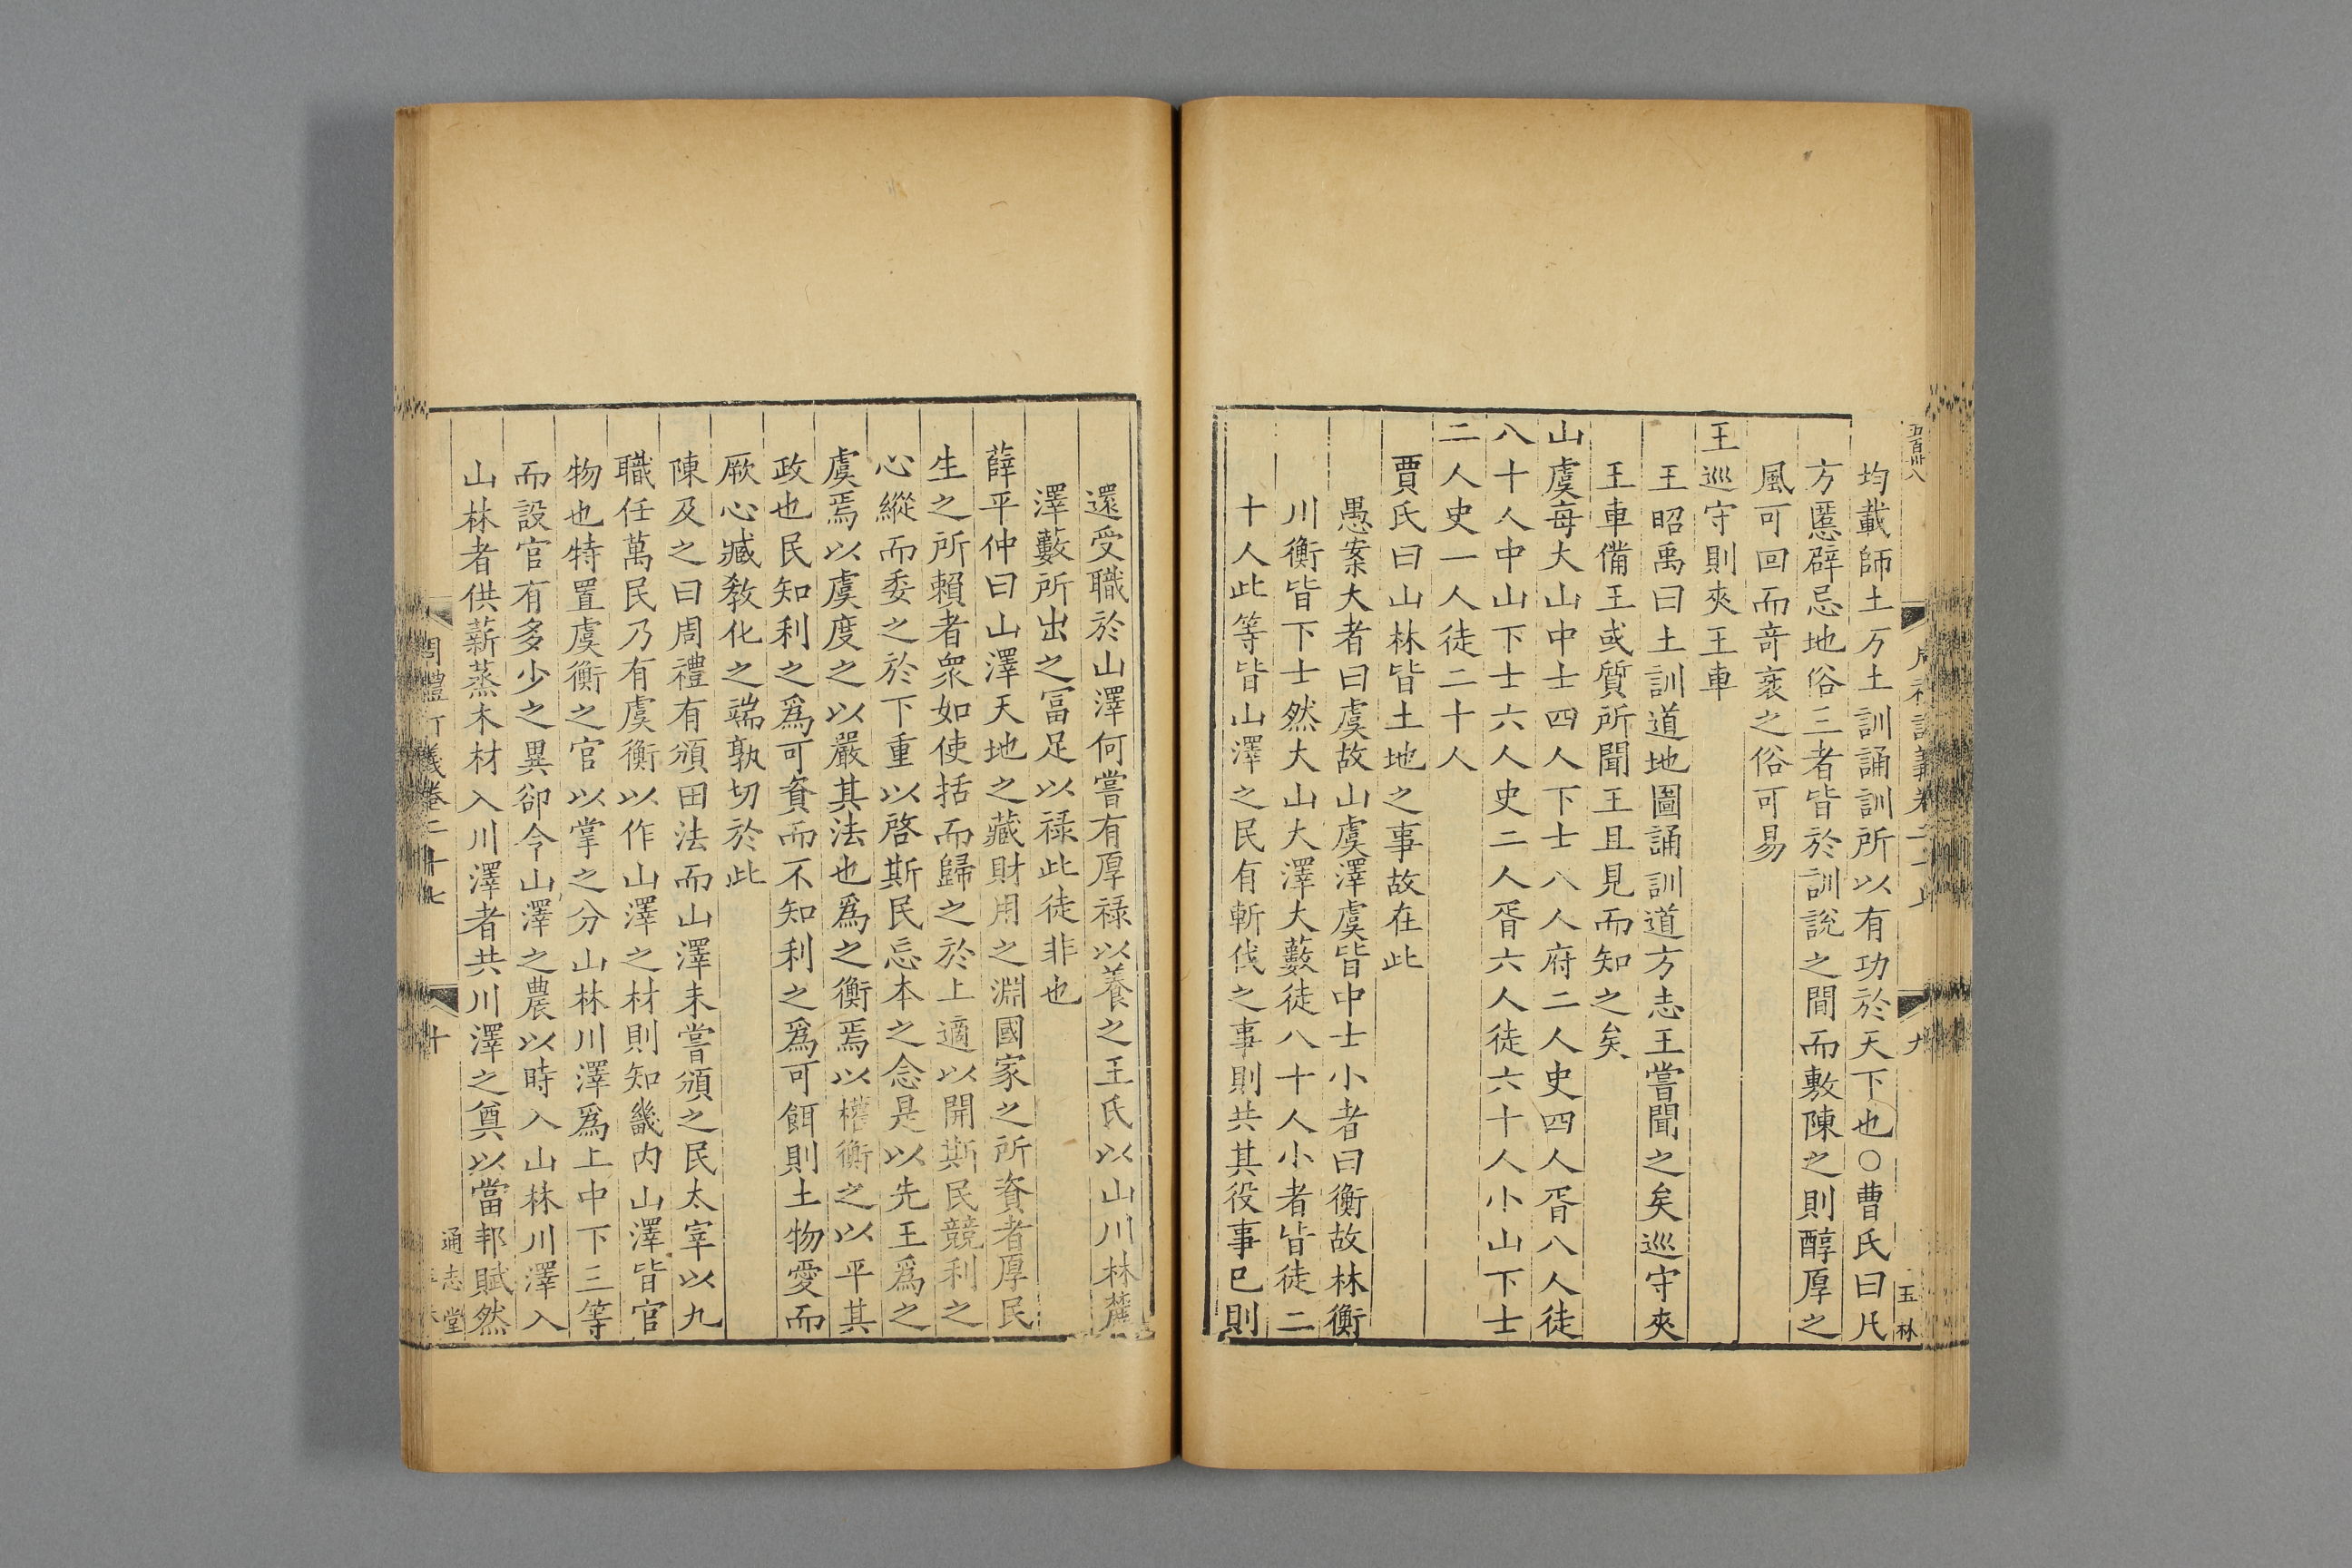 五百卅八
玉林
均載師土方土訓誦訓所以有功於天下也○曹氏曰凡
方慝辟忌地俗三者皆於訓說之間而敷陳之則醇厚之
風可回而竒衺之俗可易
王巡守則夾王車
王昭禹曰土訓道地圖誦訓道方志王嘗聞之矣巡守夾
王車備王或質所聞王且見而知之矣
山虞每大山中士四人下士八人府二人史四人胥八人徒
八十人中山下士六人史二人胥六人徒六十人小山下士
二人史一人徒二十人
賈氏曰山林皆土地之事故在此
愚案大者曰虞故山虞澤虞皆中士小者曰衡故林衡
川衡皆下士然大山大澤大藪徒八十人小者皆徒二
十人此等皆山澤之民有斬伐之事則共其役事已則
還受職於山澤何嘗有厚祿以養之王氏以山川林麓
澤藪所出之冨足以祿此徒非也
薛平仲曰山澤天地之藏財用之淵國家之所資者厚民
生之所賴者衆如使括而歸之於上適以開斯民競利之
心縱而委之於下重以啓斯民忘本之念是以先王爲之
虞焉以虞度之以嚴其法也爲之衡焉以權衡之以平其
政也民知利之爲可資而不知利之爲可餌則土物愛而
厥心臧教化之端孰切於此
陳及之曰周禮有頒田法而山澤未嘗頒之民太宰以九
職任萬民乃有虞衡以作山澤之材則知畿内山澤皆官
物也特置虞衡之官以掌之分山林川澤爲上中下三等
而設官有多少之異卻令山澤之農以時入山林川澤入
山林者供薪蒸木材入川澤者共川澤之奠以當邦賦然
周禮訂義卷二十七
十
通志堂